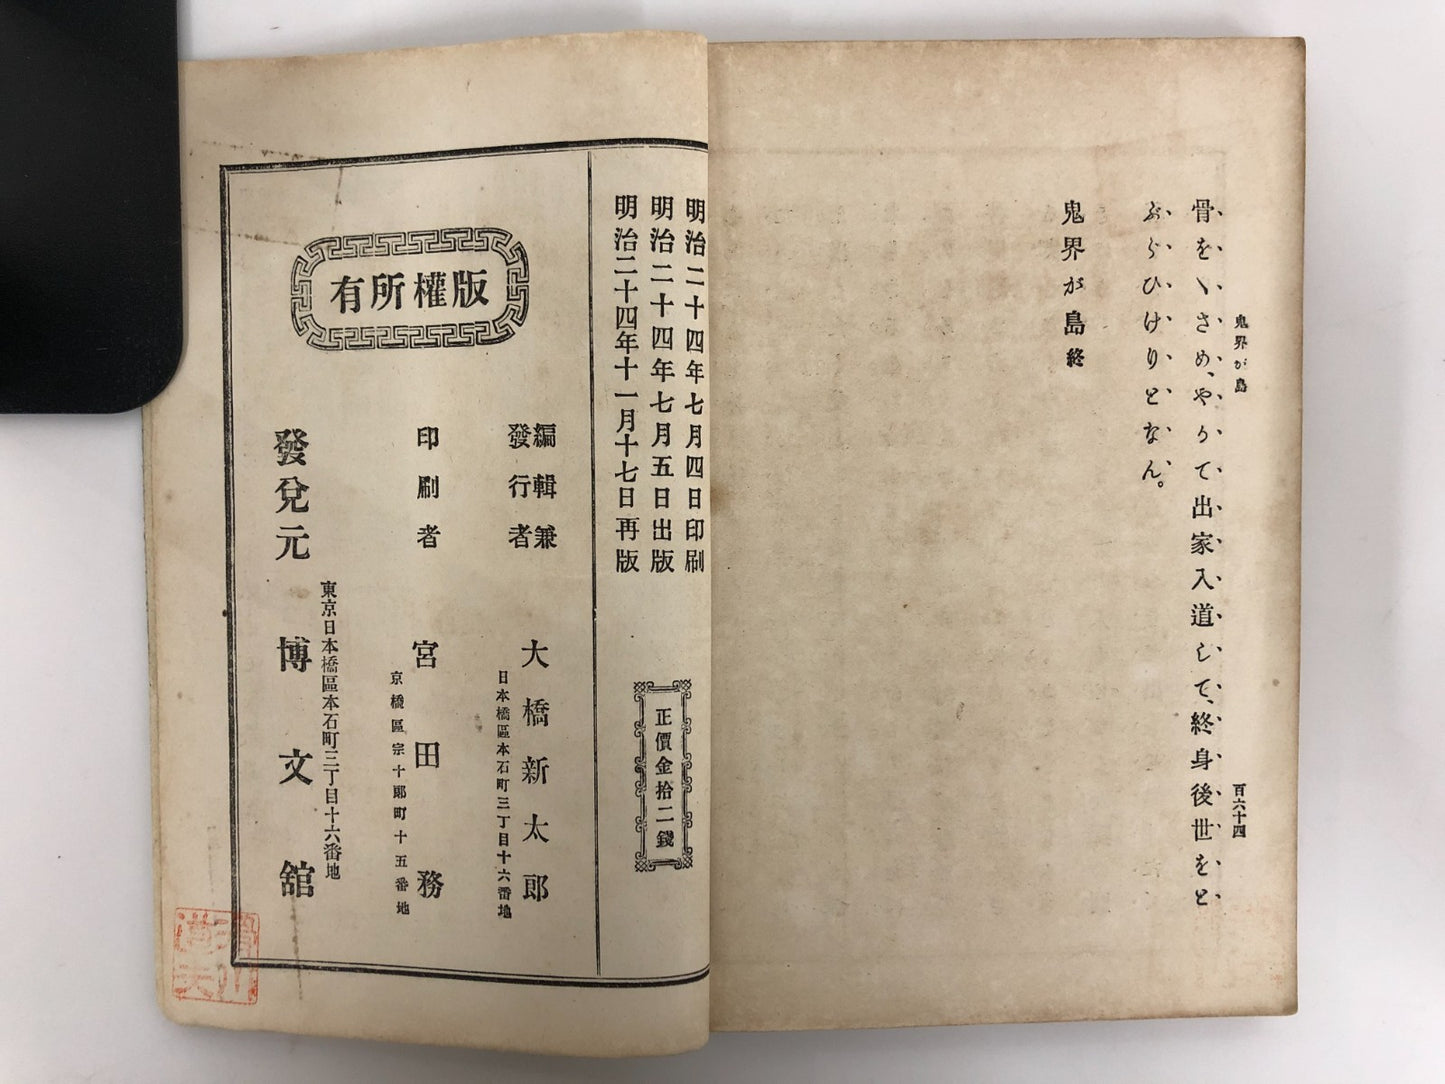 鬼界が島
百六十四
骨をヽさめ、やがて出家入道して、終身後世をと
ぶらひけりとなん。
鬼界が島終
明治二十四年七月四日印刷
明治二十四年七月五日出版
明治二十四年十一月十七日再版
正價金拾二錢
版權所有
編輯兼
發行者
大橋新太郎
日本橋區本石町三丁目十六番地
印刷者
宮田務
京橋區宗十郞町十五番地
東京日本橋區本石町三丁目十六番地
發兌元
博文舘